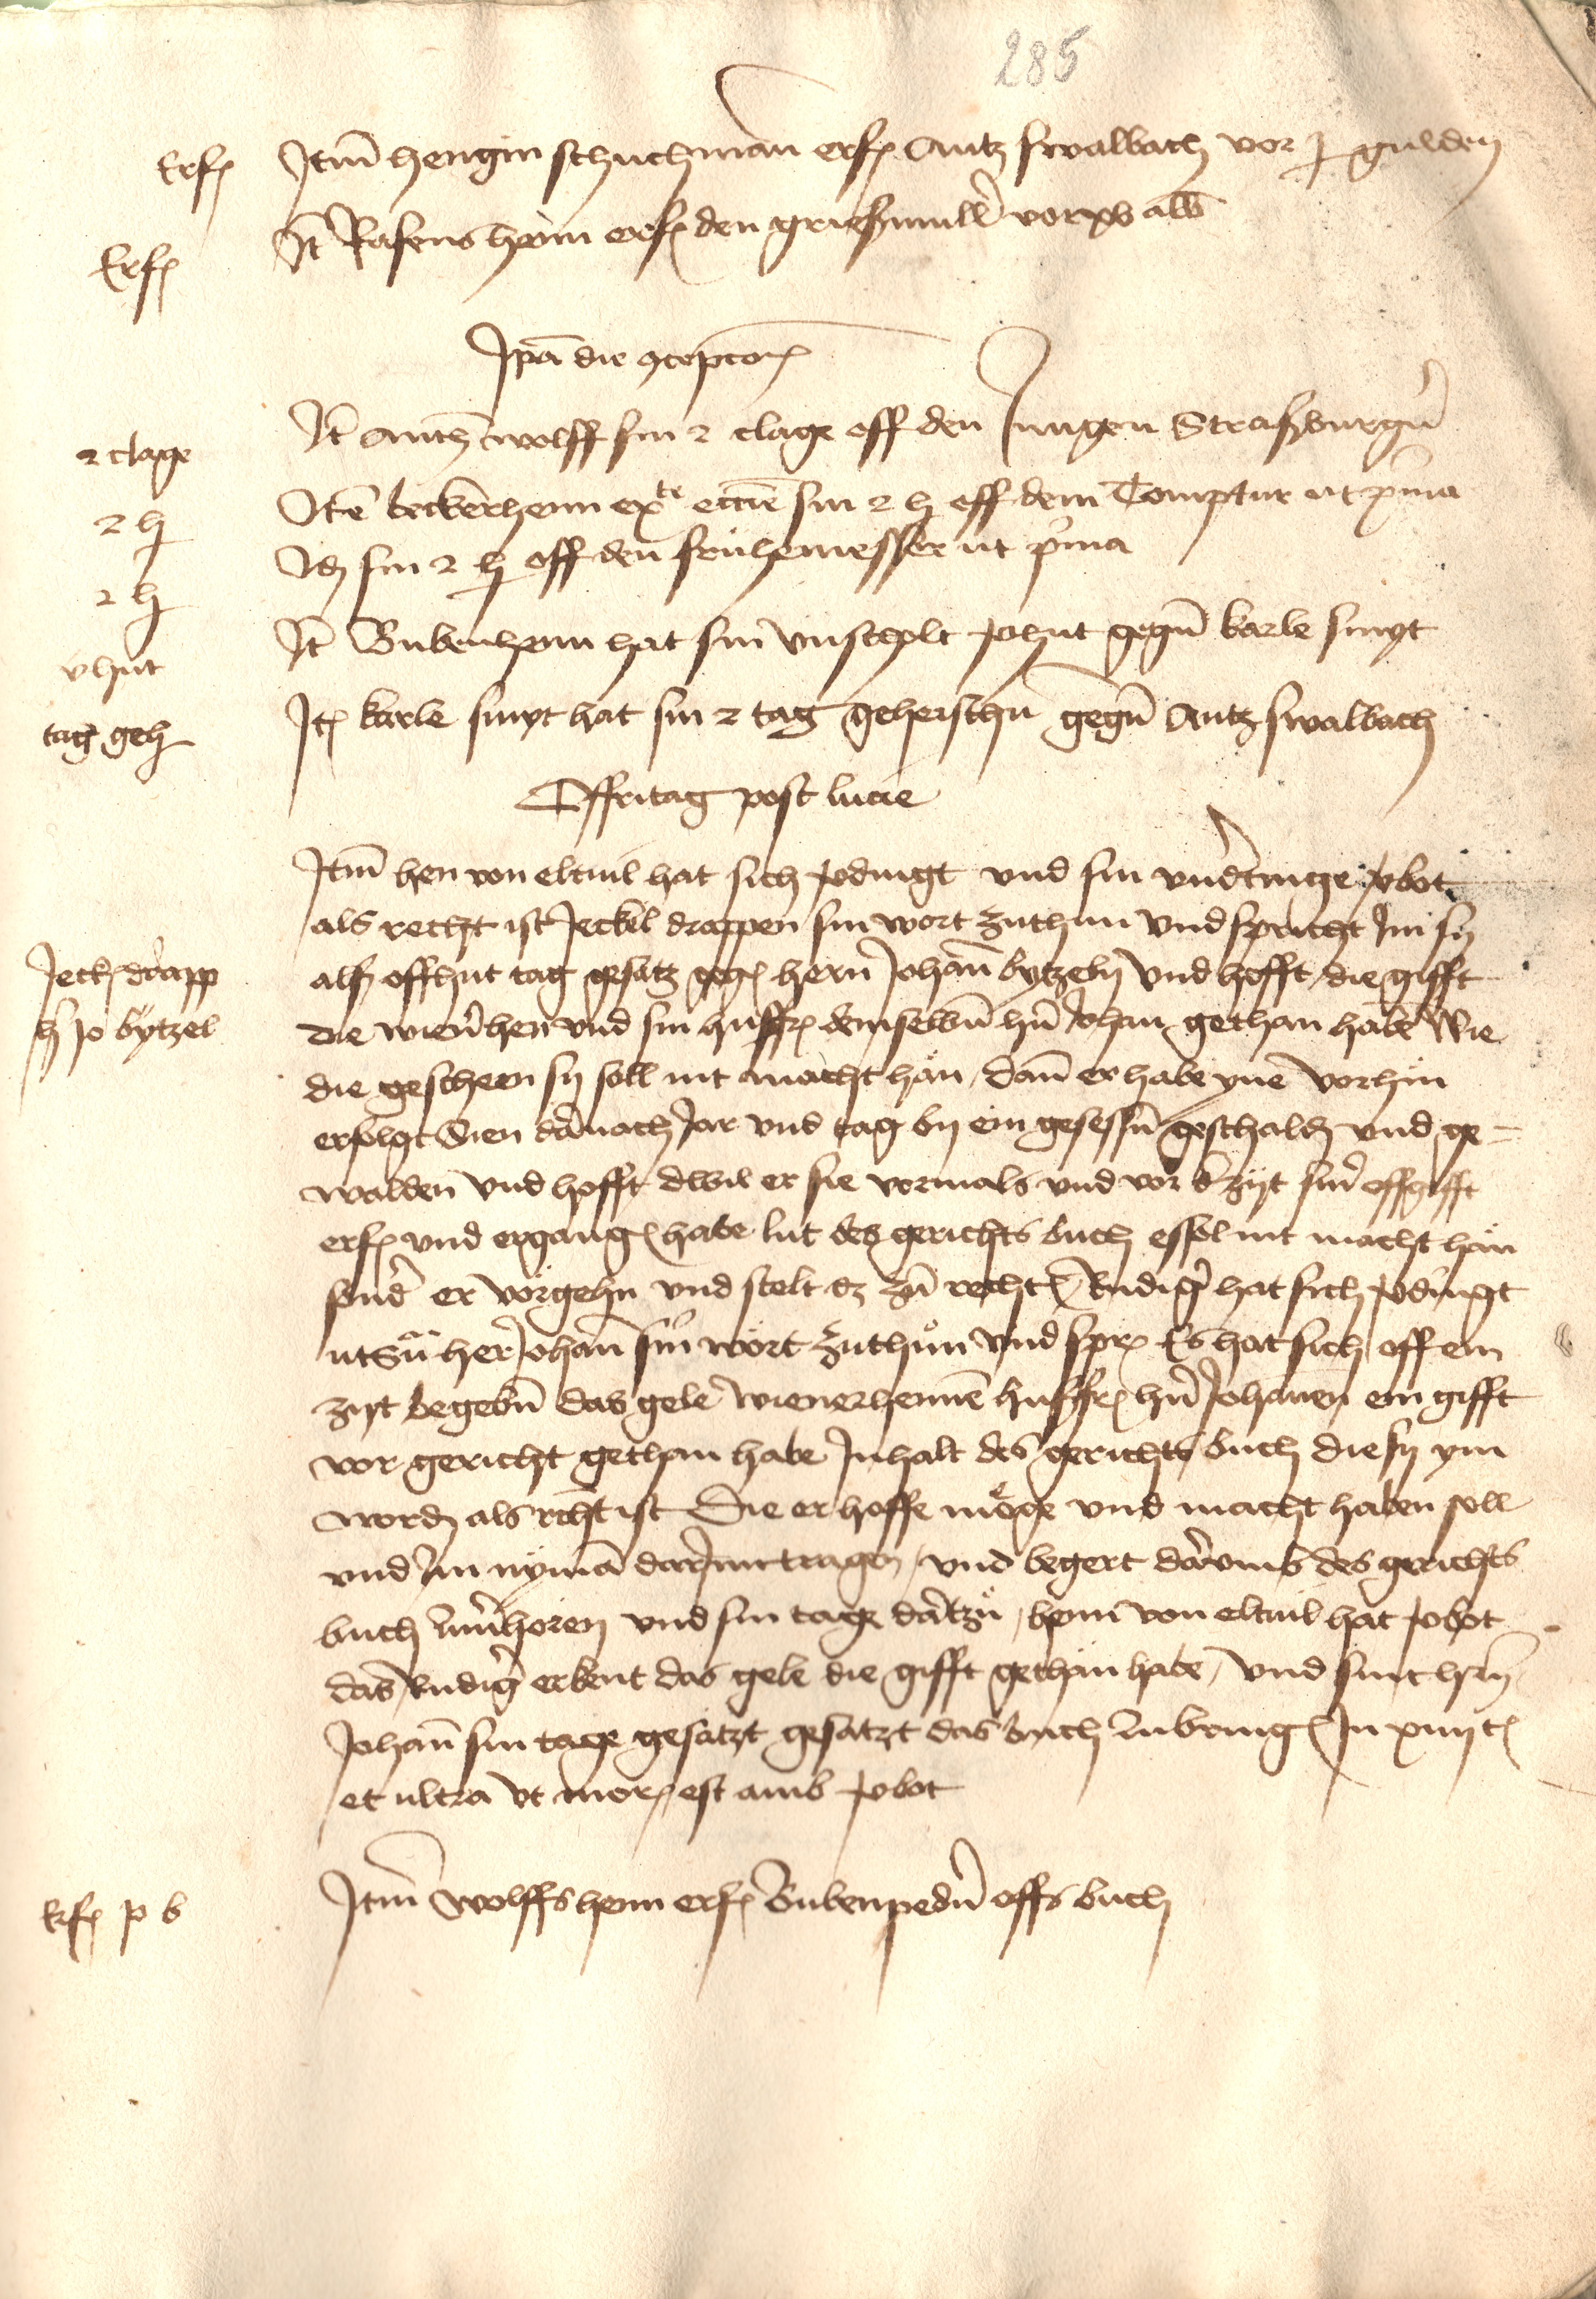 285
Erf
Itm hengin schuchman erf Antz swalbach vor j gulden
Erf
It Rasens henn erf den grießmull vor xv alb
Ipa die concepcon
2 clage
It Antz wolff sin 2 clage off den Jungen Straßburg
2 h
Ite beckerhenn ex te eccie sin 2 h off dem Comptur ut pma
2 h
Id sin 2 h off den fruhemesser ut pma
v hut
It Bubenhenn hat sin unscholt vhut gegn karle smyt
tag geh
Itm karle smyt hat sin 2 tag geheischn gegn Antz swalbach
Off fritag post lucie
Itm hen von eltuil hat sich vdingt und sin underdinge vbot
als recht ist Jeckel drappen sin wort zuthun und spricht Im sy
Jeck drapp
als off hut tag gesatz geg hern Johan bytzeln und hofft die gifft
h Jo bytzel
die wiener hen und sin husfr demselben hn Johan gethan habe wie
die gescheen sy soll nit macht han, dan er habe yne vorhin
erfolgt Sien darnach Jar und tag by ein gesessn geschalden und ge=
walden und hofft dwil er sie vormals und vor d zijt sinr offgifft
erf und ergang habe lut des gerichts buch es sol nit macht han
sond er vorgehn und stelt dz zu recht Rudig hat sich vdingt
her Johan sin wort zuthun und spr Es hat sich off ein
zijt begebn das gele wienerhenne husfr hn Johanen ein gifft
vor gericht gethan habe Inhalt des gerichts buch die sy ym
word als recht ist Die er hoffe moge und macht haben soll
und Im nyman dar In tragen, und begert darumb des gerichts
buch zuverhoren und sin tage dartzu, henn von eltuil hat vbot
das Rudig erkent das gele die gifft gethan habe, und sint hern
Johan sin tage gesatzt gesatzt das buch zubring In xiiij t
et ultra ut mor est amb vbot
Erf p b
Itm wolffs henn erf Bubenpedn offs buch